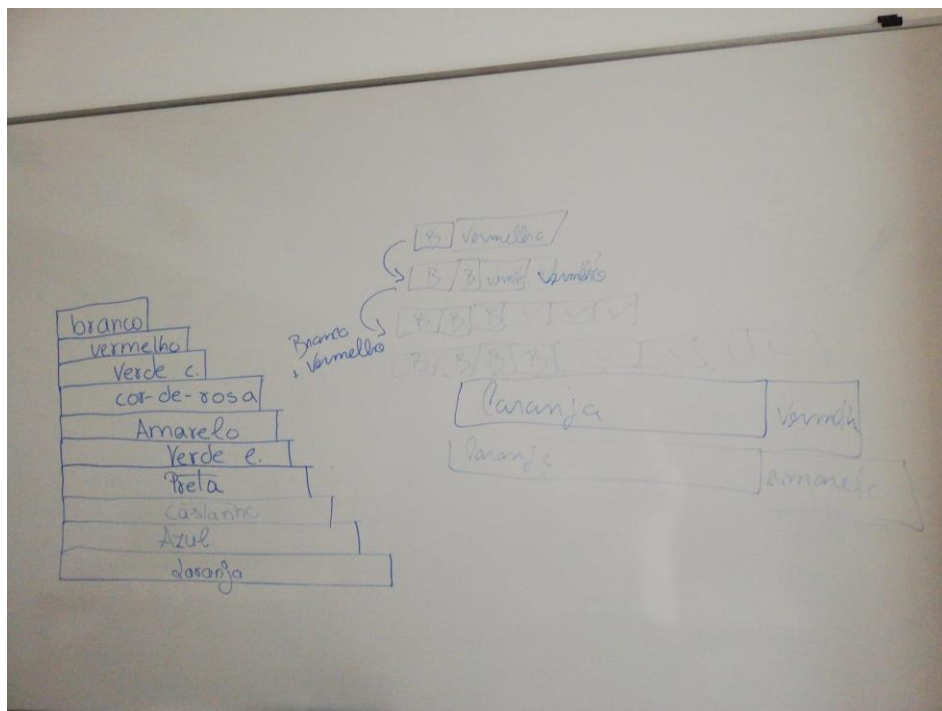 branco
vermelho
Verde c.
cor-de-rosa
Amarelo
Verde e.
Preta
Castanho
Azul
Laranja
Branco
+ Vermelho
B Vermelho
B B Vermelho
B B B V V V
B B B B
Laranja
Laranja Amarelo